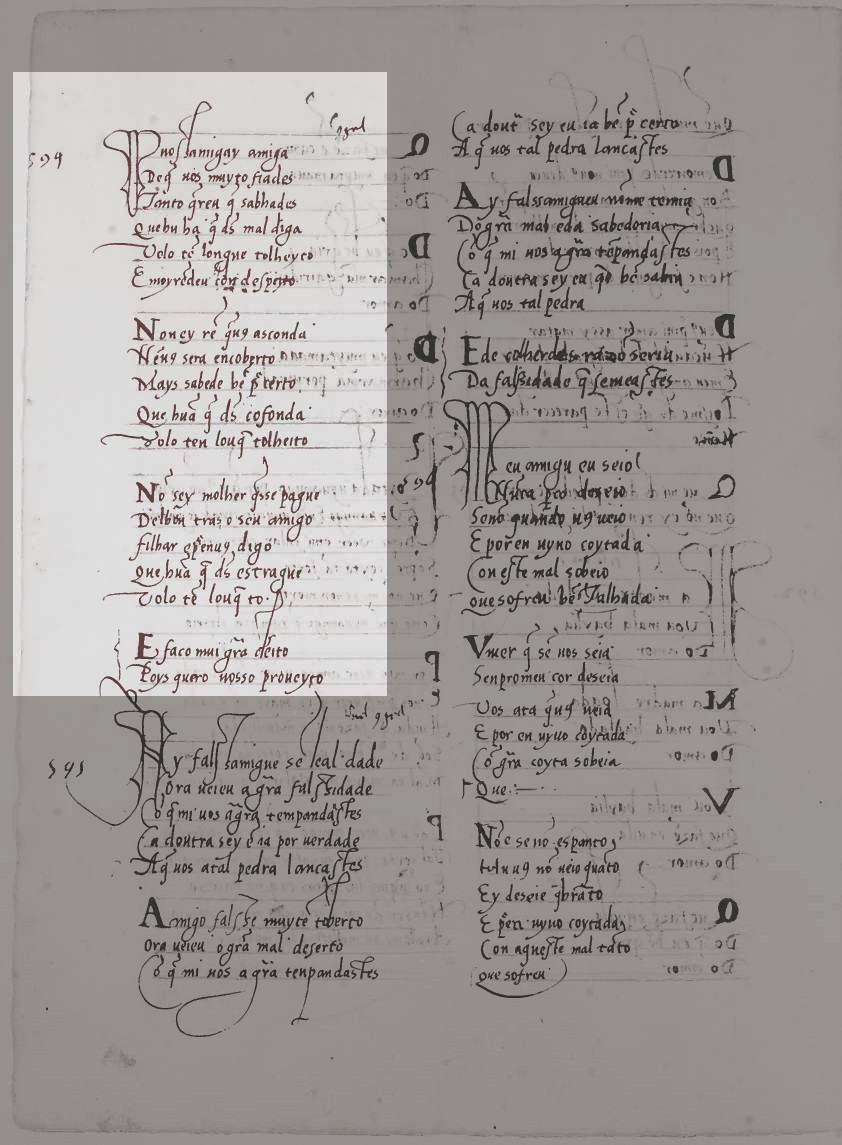 594
P uossamiga y amiga
De q̄ uos muyto fiades
Tanto q̄reu q̄ sabhades
Quehu ha q̄ d̄s mal diga
Uolo tē longue tolheyto
E moyredeu cō despeyto
Non ey rē q̄ u9 asconda
Nē u9 sera encoberto
Mays sabede bē p̄ certo
Que hūa q̄ d̄s cofonda
Uolo ten louq̄ tolheito
Nō sey molher q̄sse pague
Delhoutras o seu amigo
filhar e p̄ en u9 digo
Que hūa q̄ d̄s estrague
Uolo tē louq̄ to
E faco mui grā deito
Poys quero uosso proueyto
595
Ay falssamigue se leal dade
Ora ueieu a grā falssidade
Cō q̄ mi uos a grā tempandastes
Ca doutra sey eu ia por uerdade
A q̄ uos atal pedra lancastes
Amigo falsse muyt encoberto
Ora ueieu o grā mal deserto
Cō q̄ mi uos a grā tenpandastes
Ca dout̄ sey eu ia bē p̄ certo
A q̄ uos tal pedra lancastes
Ay falssamigueu nōme temia
Do grā mal e da sabedoria
Cō q̄ mi uos a grā tēpandastes
Ca doutra sey eu q̄o bē sabia
A q̄ uos tal pedra
E de colherdes razō seria
Da falssidade q̄ semeastes
M eu amigu eu seio
Nūca p̄co deseio
Senō quando u9 ueio
E por en uyuo coytada
Con este mal sobeio
que sofreu bē Talhada
Viuer q̄ sē uos seia
Senpromeu cor deseia
Uos ata q̄ u9 ueia
E por en uyuo coytada
Cō grā coyta sobeia
Que
Nō e senō espanto
hu u9 nō ueio quāto
Ey deseie q̄brāto
E p̄ en uyuo coytada
Con aqueste mal tāto
que sofreu